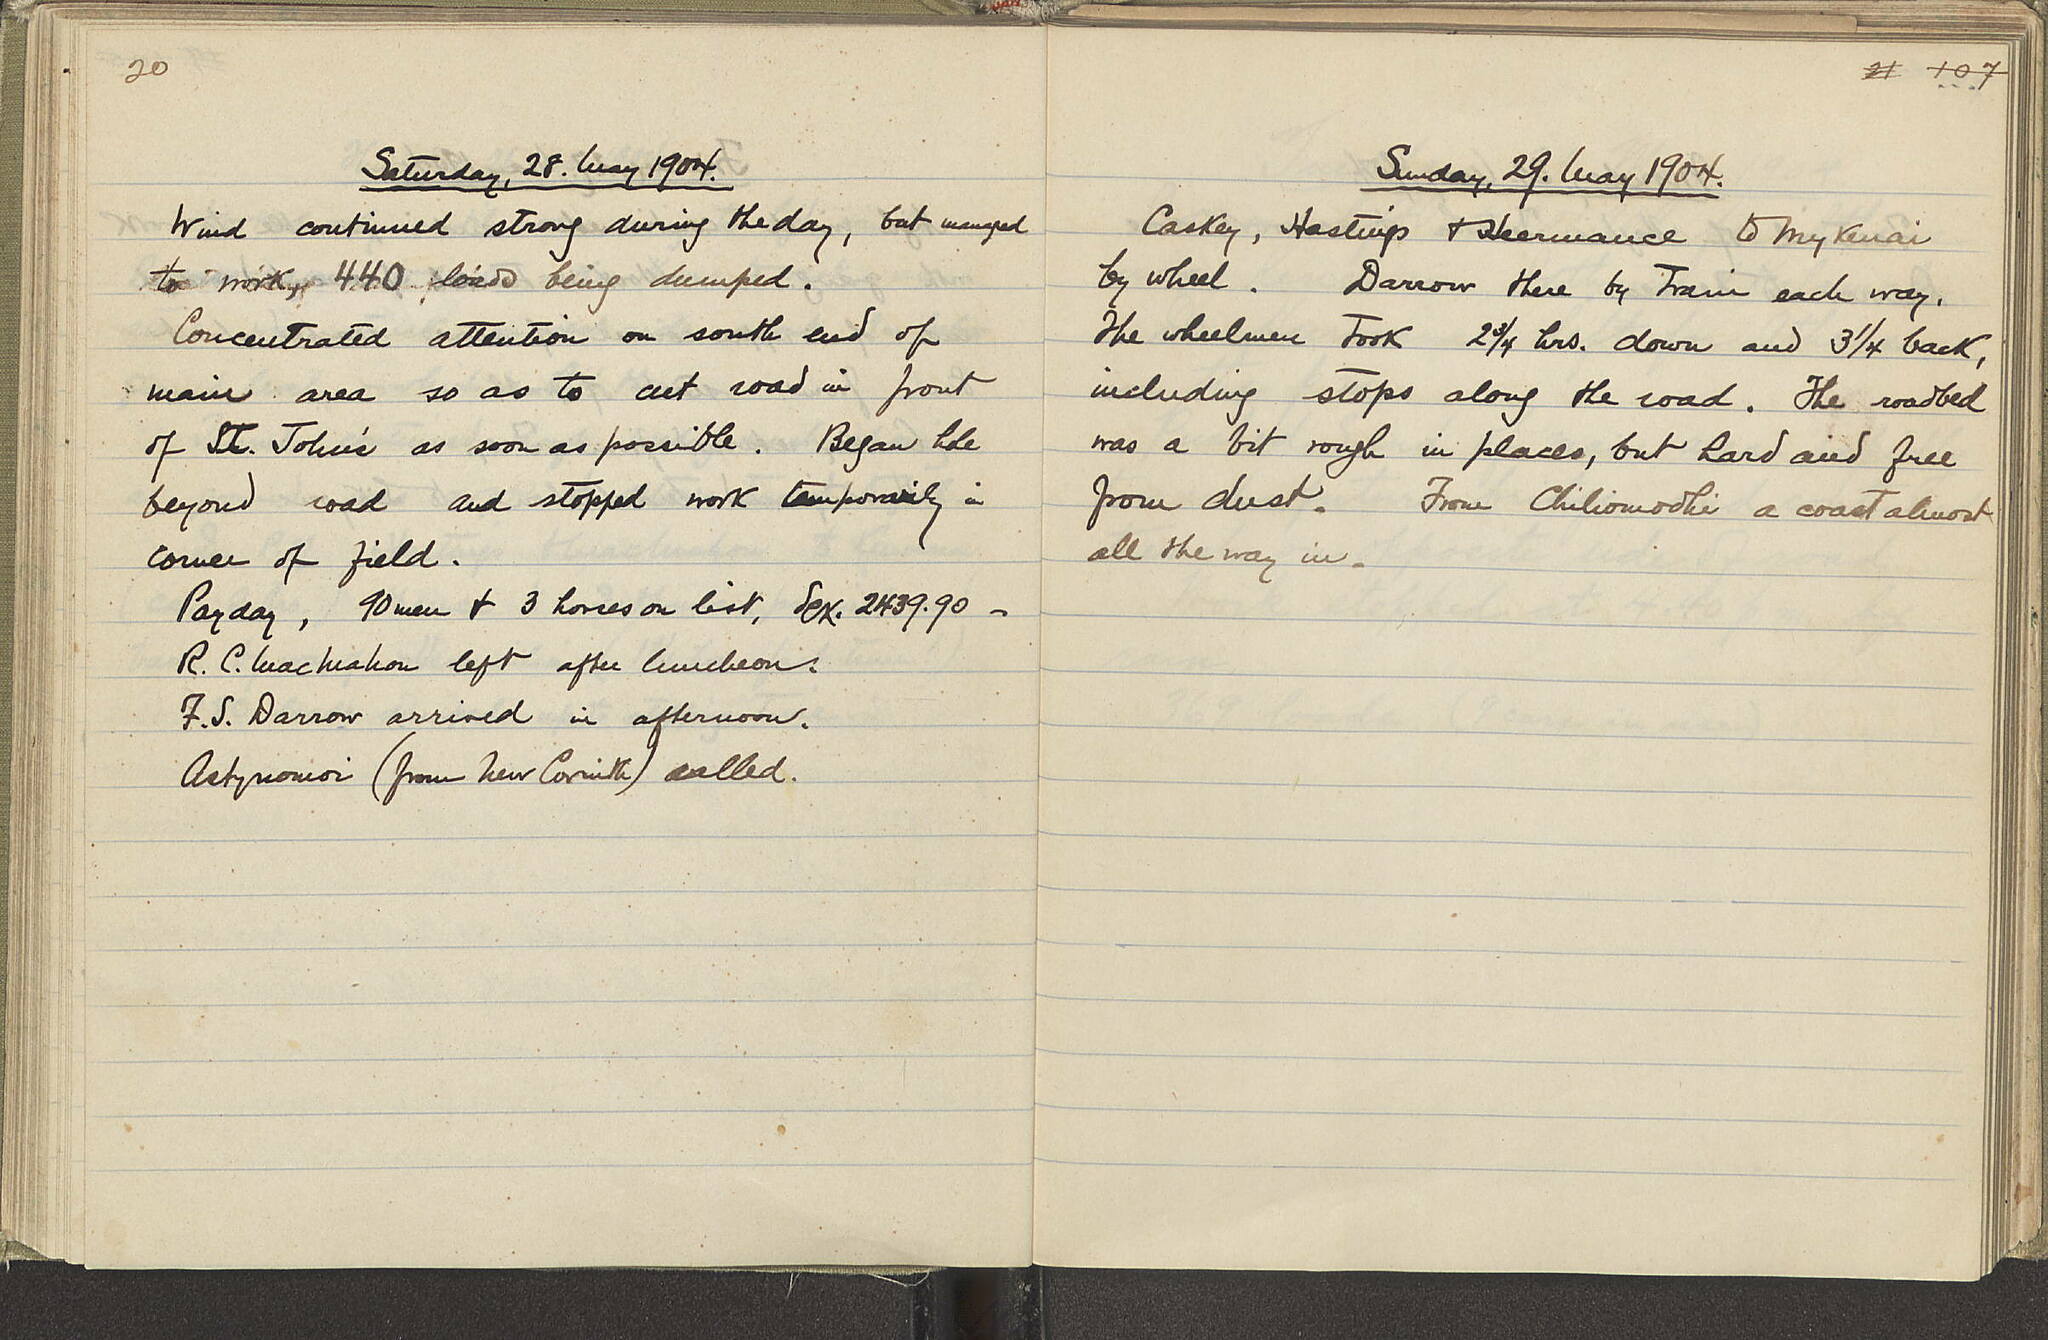 20
Saturday, 28. May 1904.
Wind continued strong during the day, but managed
to work, 440 loads being dumped.
Concentrated attention on south end of
main area so as to cut road in front
of St. John's as soon as possible. Began hole
beyond road and stopped work temporarily in
corner of field.
Payday, 90 men & 3 horses on list, δρχ. 2439.90 -
R. C. MacMahon left after luncheon.
F. S. Darrow arrived in afternoon.
Astynomoi (from New Corinth) called.
21 107
Sunday, 29. May 1904.
Caskey, Hastings & Heermance to Mykenai
by wheel. Darrow there by train each way.
The wheelmen took 2 3/4 hrs. down and 3 1/4 back,
including stops along the road. The roadbed
was a bit rough in places, but hard and free
from dust. From Chiliomodhi a coast almost
all the way in.